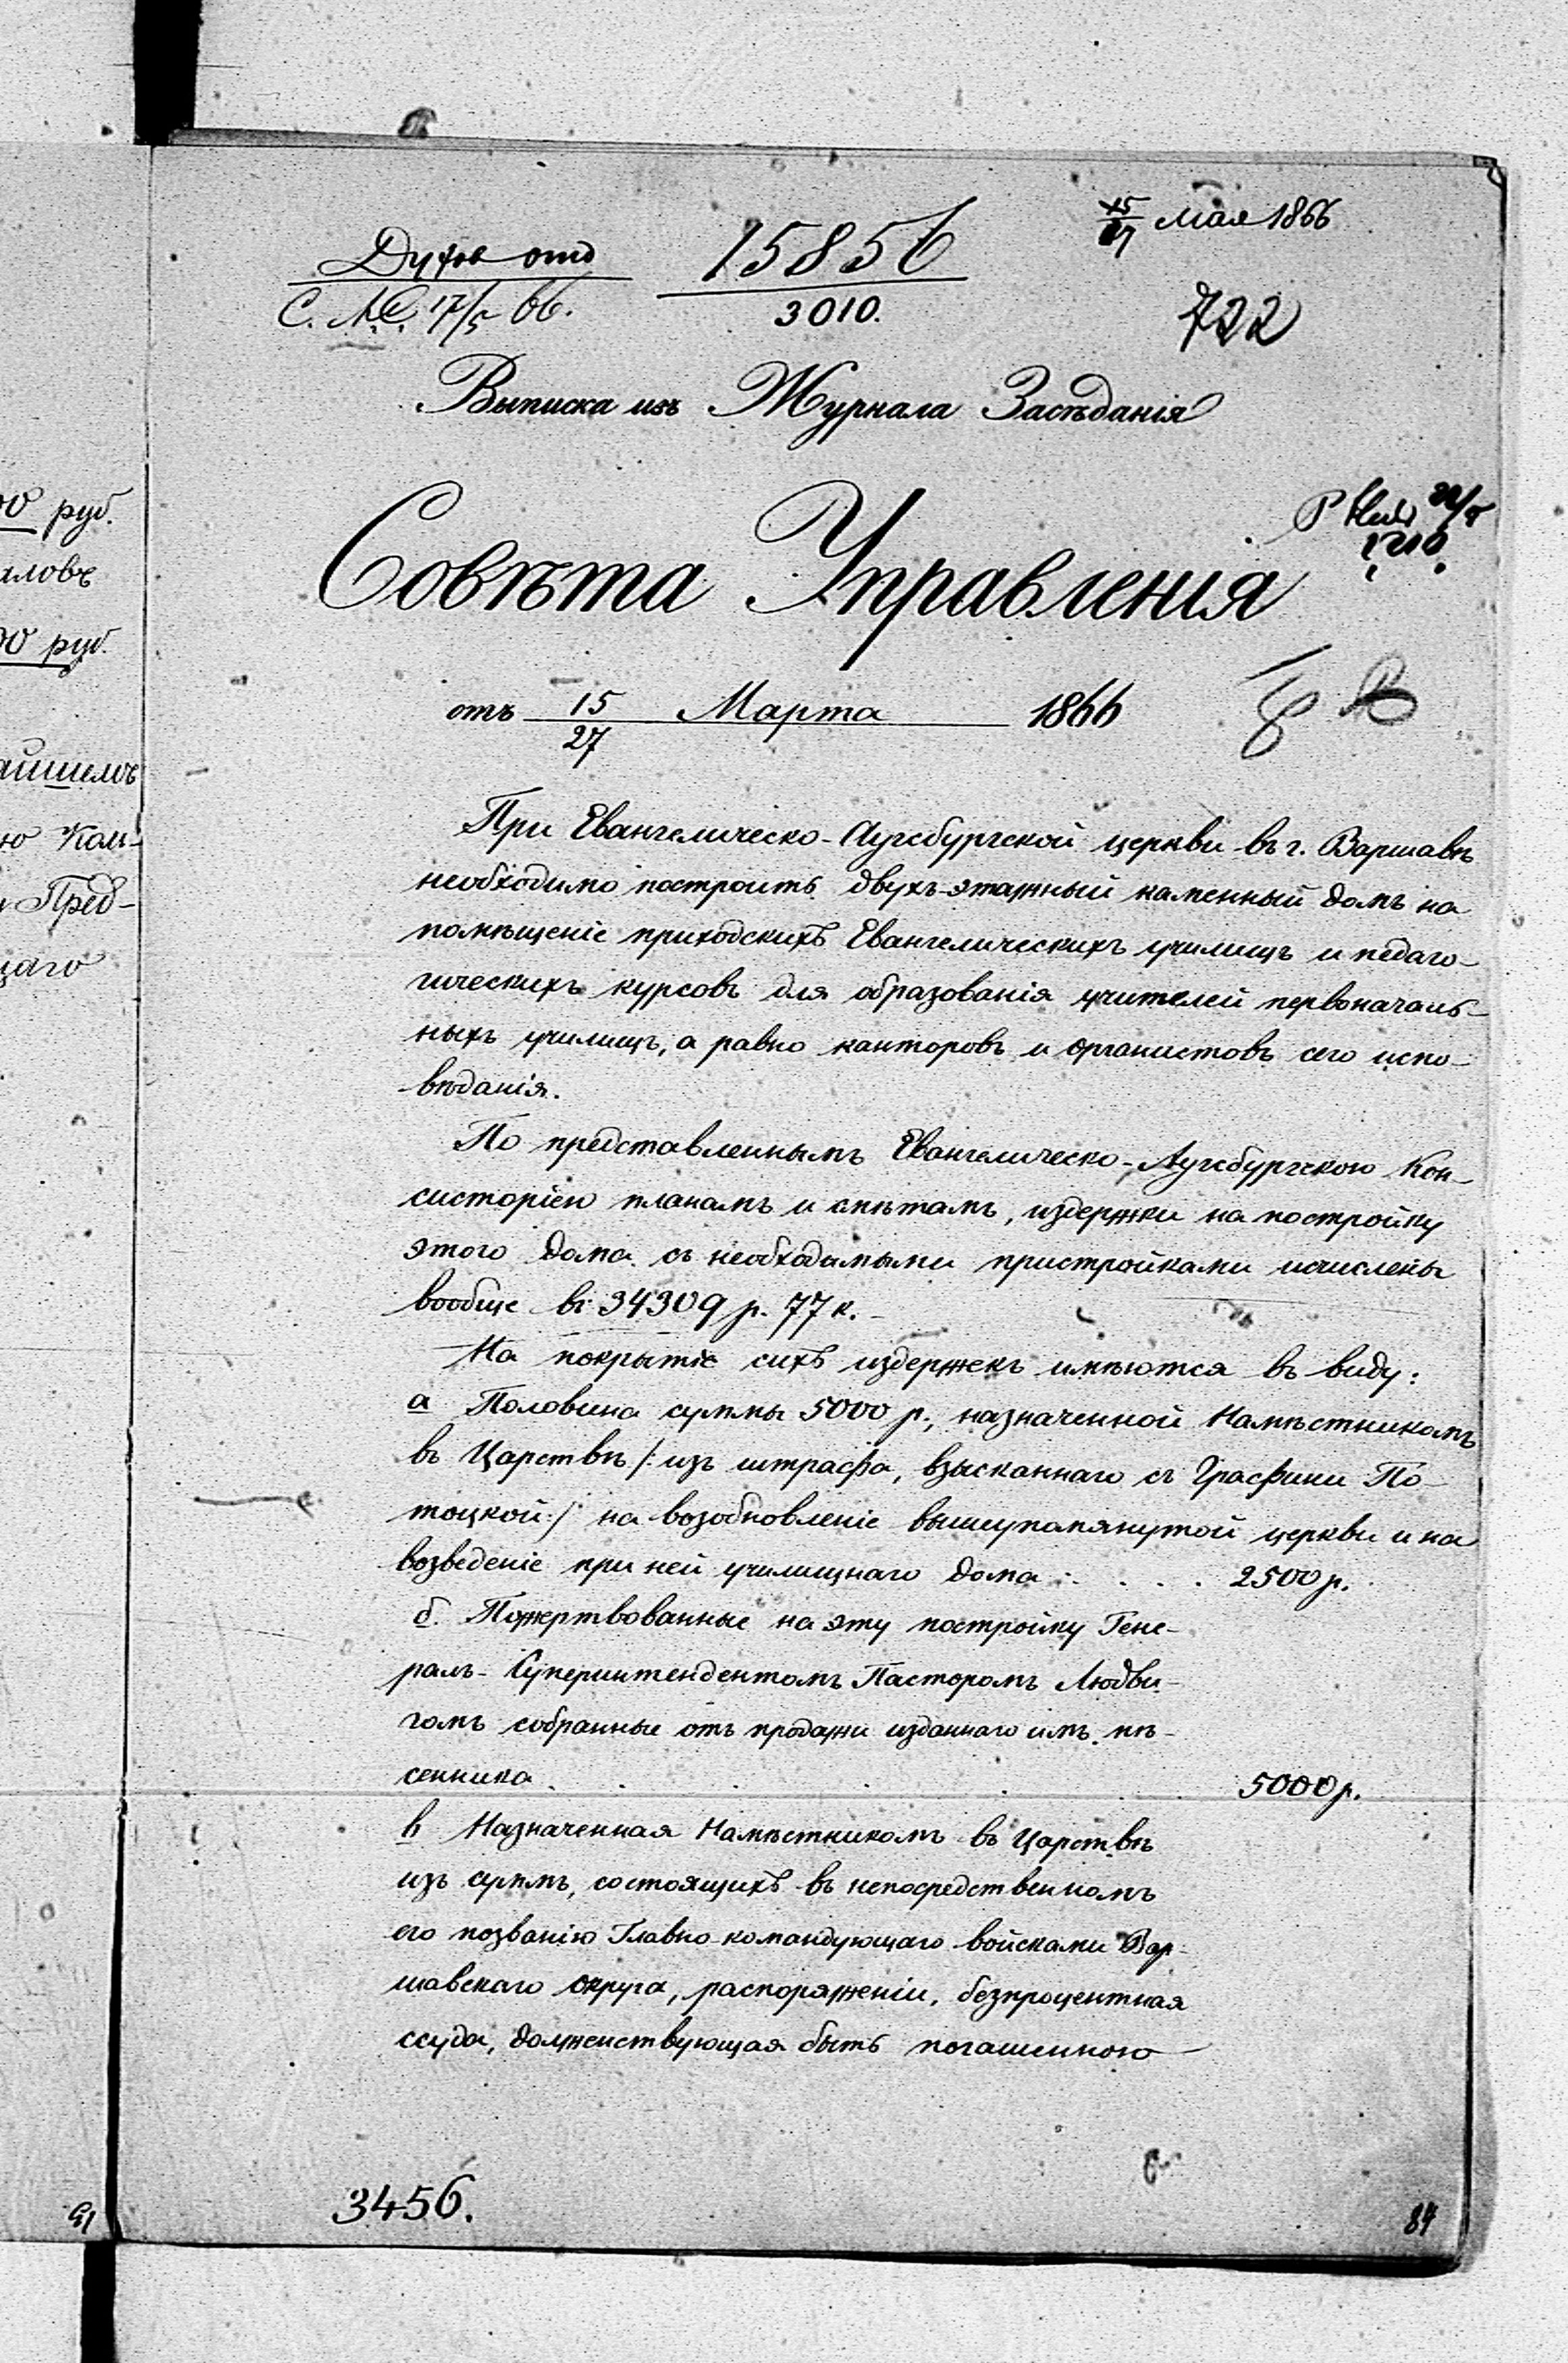 15/27 Мая 1866
Духов отд
15856
С. 17/5 66.
3010.
722
Выписка изъ Журнала Засѣданія
Совѣта Управленія
отъ 15/27 Марта 1866
При Евангелическо-Аугсбургской церкви въ г. Варшавѣ
необходимо построить двухъ-этажный каменный домъ на
помѣщеніе приходскихъ Евангелическихъ училищъ и педаго-
гическихъ курсовъ для образованія учителей первоначаль-
ныхъ училищъ, а равно канторовъ и органистовъ сего испо-
вѣданія.
По представленнымъ Евангелическо-Аугсбургскою Кон-
систоріею планамъ и смѣтамъ, издержки на постройку
этого дома съ необходимыми пристройками исчислены
вообще въ 34309 р. 77 к.
На покрытіе сихъ издержекъ имѣются въ виду:
а Половина суммы 5000 р., назначенной Намѣстникомъ
въ Царствѣ /: изъ штрафа, взысканнаго съ Графини По-
тоцкой :/ на возобновленіе вышеупамянутой церкви и на
возведеніе при ней училищнаго дома . . . . 2500 р.
б. Пожертвованные на эту постройку Гене-
ралъ-Суперинтендентомъ Пасторомъ Людви-
гомъ собранные отъ продажи изданнаго имъ пѣ-
сенника . . . . 5000 р.
в Назначенная Намѣстникомъ въ Царствѣ
изъ суммъ, состоящихъ въ непосредственномъ
его по званію Главно-командующаго войсками Вар-
шавскаго округа, распоряженіи, безпроцентная
ссуда, долженствующая быть погашенною
3456.
84
00 руб.
00 руб.
ю Ком-
Пред-
щаго